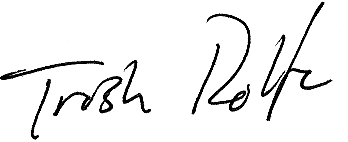 Trish Rolfe